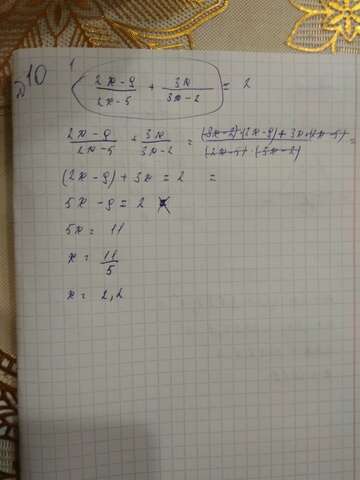 №10
1
(2x-9)/(2x-5) + 3x/(3x-2) = 2
(2x-9)/(2x-5) + 3x/(3x-2) = ((3x-2)·(2x-9)+3x·(2x-5))/((2x-5)·(3x-2)) =
(2x-9)+3x=2 =
5x-9=2
5x=11
x=11/5
x=2,2